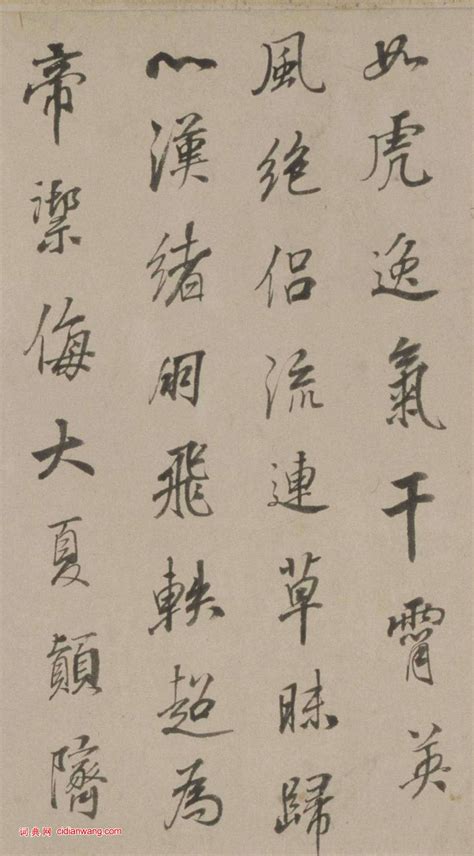 如虎逸氣干霄英
風絶侶流連草昧歸
心漢緒朋飛軼超為
帝禦侮大夏顛隮
词典网 cidianwang.com